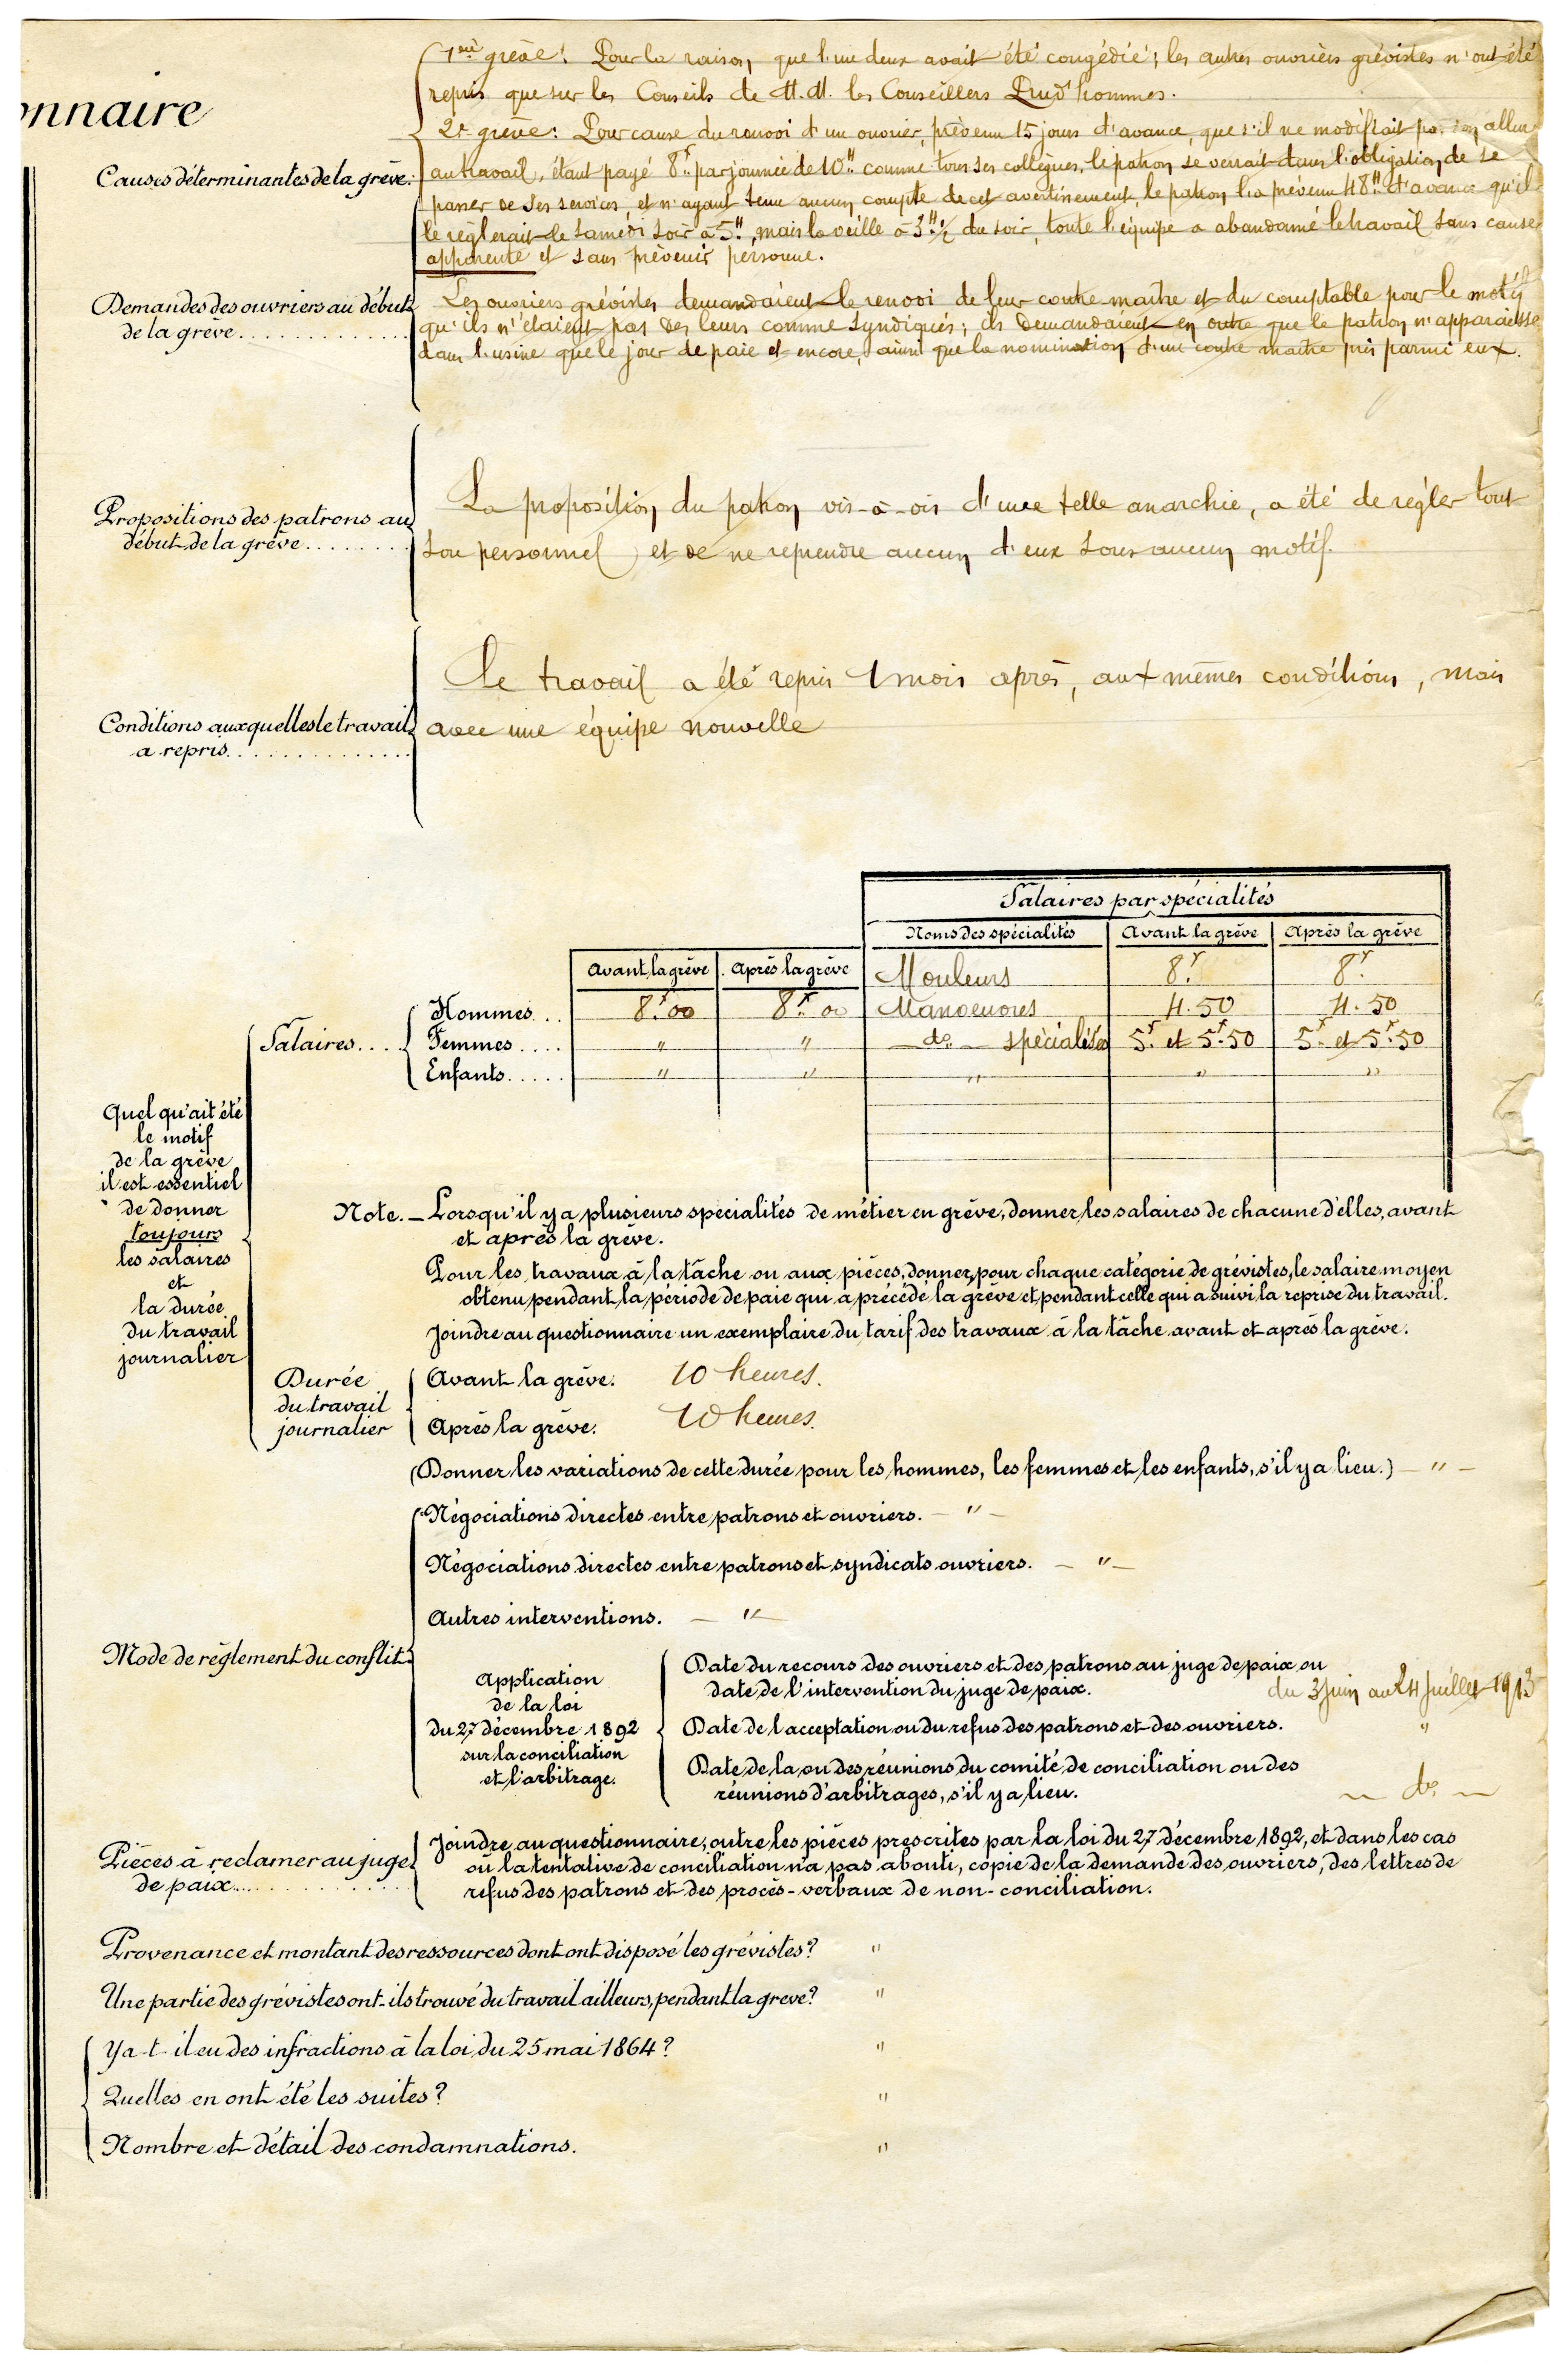 onnaire
1ère grève: Pour la raison, que l'un deux avait été congédié; les autres ouvriers grévistes n'ont été
repris que sur les Conseils de M.M. les Conseillers Prud'hommes.
2e grève: Pour cause du renvoi d'un ouvrier, prévenu 15 jours d'avance, que s'il ne modifiait pas son allure
Causes déterminantes de la grève.
au travail, étant payé 8f. par journée de 10H comme tous ses collègues, le patron se verrait dans l'obligation de se
passer de ses services, et n'ayant tenu aucun compte de cet avertissement, le patron l'a prévenu 48H d'avance qu'il
le règlerait le Samedi soir à 5H, mais la veille à 3H½ du soir, toute l'équipe a abandonné le travail sans cause
apparente et sans prévenir personne.
Demandes des ouvriers au début
de la grève
Les ouvriers grévistes demandaient le renvoi de leur contre-maître et du comptable pour le motif
qu'ils n'étaient pas des leurs comme syndiqués; ils demandaient en outre que le patron n'apparaisse
dans l'usine que le jour de paie et encore, ainsi que la nomination d'un contre maître pris parmi eux.
Propositions des patrons au
début de la grève
La proposition du patron vis-à-vis d'une telle anarchie, a été de régler tout
son personnel et de ne reprendre aucun d'eux sous aucun motif.
Conditions auxquelles le travail
a repris
Le travail a été repris 1 mois après, aux mêmes conditions, mais
avec une équipe nouvelle
Salaires par spécialités
Noms des spécialités Avant la grève Après la grève
Avant la grève Après la grève
Mouleurs 8f. 8f.
Hommes 8f.00 8f.00 Manoeuvres 4.50 4.50
Salaires
Femmes " " do — spécialités 5f. et 5f.50 5f. et 5f.50
Enfants " " " " "
Quel qu'ait été
le motif
de la grève
il est essentiel
de donner
toujours
les salaires
et
la durée
du travail
journalier
Note. — Lorsqu'il y a plusieurs spécialités de métier en grève, donner les salaires de chacune d'elles, avant
et après la grève.
Pour les travaux à la tâche ou aux pièces, donner, pour chaque catégorie de grévistes, le salaire moyen
obtenu pendant la période de paie qui a précédé la grève et pendant celle qui a suivi la reprise du travail.
Joindre au questionnaire un exemplaire du tarif des travaux à la tâche avant et après la grève.
Durée
du travail
journalier
Avant la grève. 10 heures.
Après la grève. 10 heures.
(Donner les variations de cette durée pour les hommes, les femmes et les enfants, s'il y a lieu.) — " —
Négociations directes entre patrons et ouvriers. — " —
Négociations directes entre patrons et syndicats ouvriers. — " —
Autres interventions. — " —
Mode de règlement du conflit
Application
de la loi
du 27 décembre 1892
sur la conciliation
et l'arbitrage.
Date du recours des ouvriers et des patrons au juge de paix ou
date de l'intervention du juge de paix. du 3 Juin au 24 Juillet
Date de l'acceptation ou du refus des patrons et des ouvriers. "
Date de la ou des réunions du comité de conciliation ou des
réunions d'arbitrages, s'il y a lieu. — do —
Pièces à réclamer au juge
de paix
Joindre au questionnaire, outre les pièces prescrites par la loi du 27 décembre 1892, et dans les cas
où la tentative de conciliation n'a pas abouti, copie de la demande des ouvriers, des lettres de
refus des patrons et des procès-verbaux de non-conciliation.
Provenance et montant des ressources dont ont disposé les grévistes? "
Une partie des grévistes ont-ils trouvé du travail ailleurs, pendant la grève? "
Y a-t-il eu des infractions à la loi du 25 mai 1864? "
Quelles en ont été les suites? "
Nombre et détail des condamnations. "